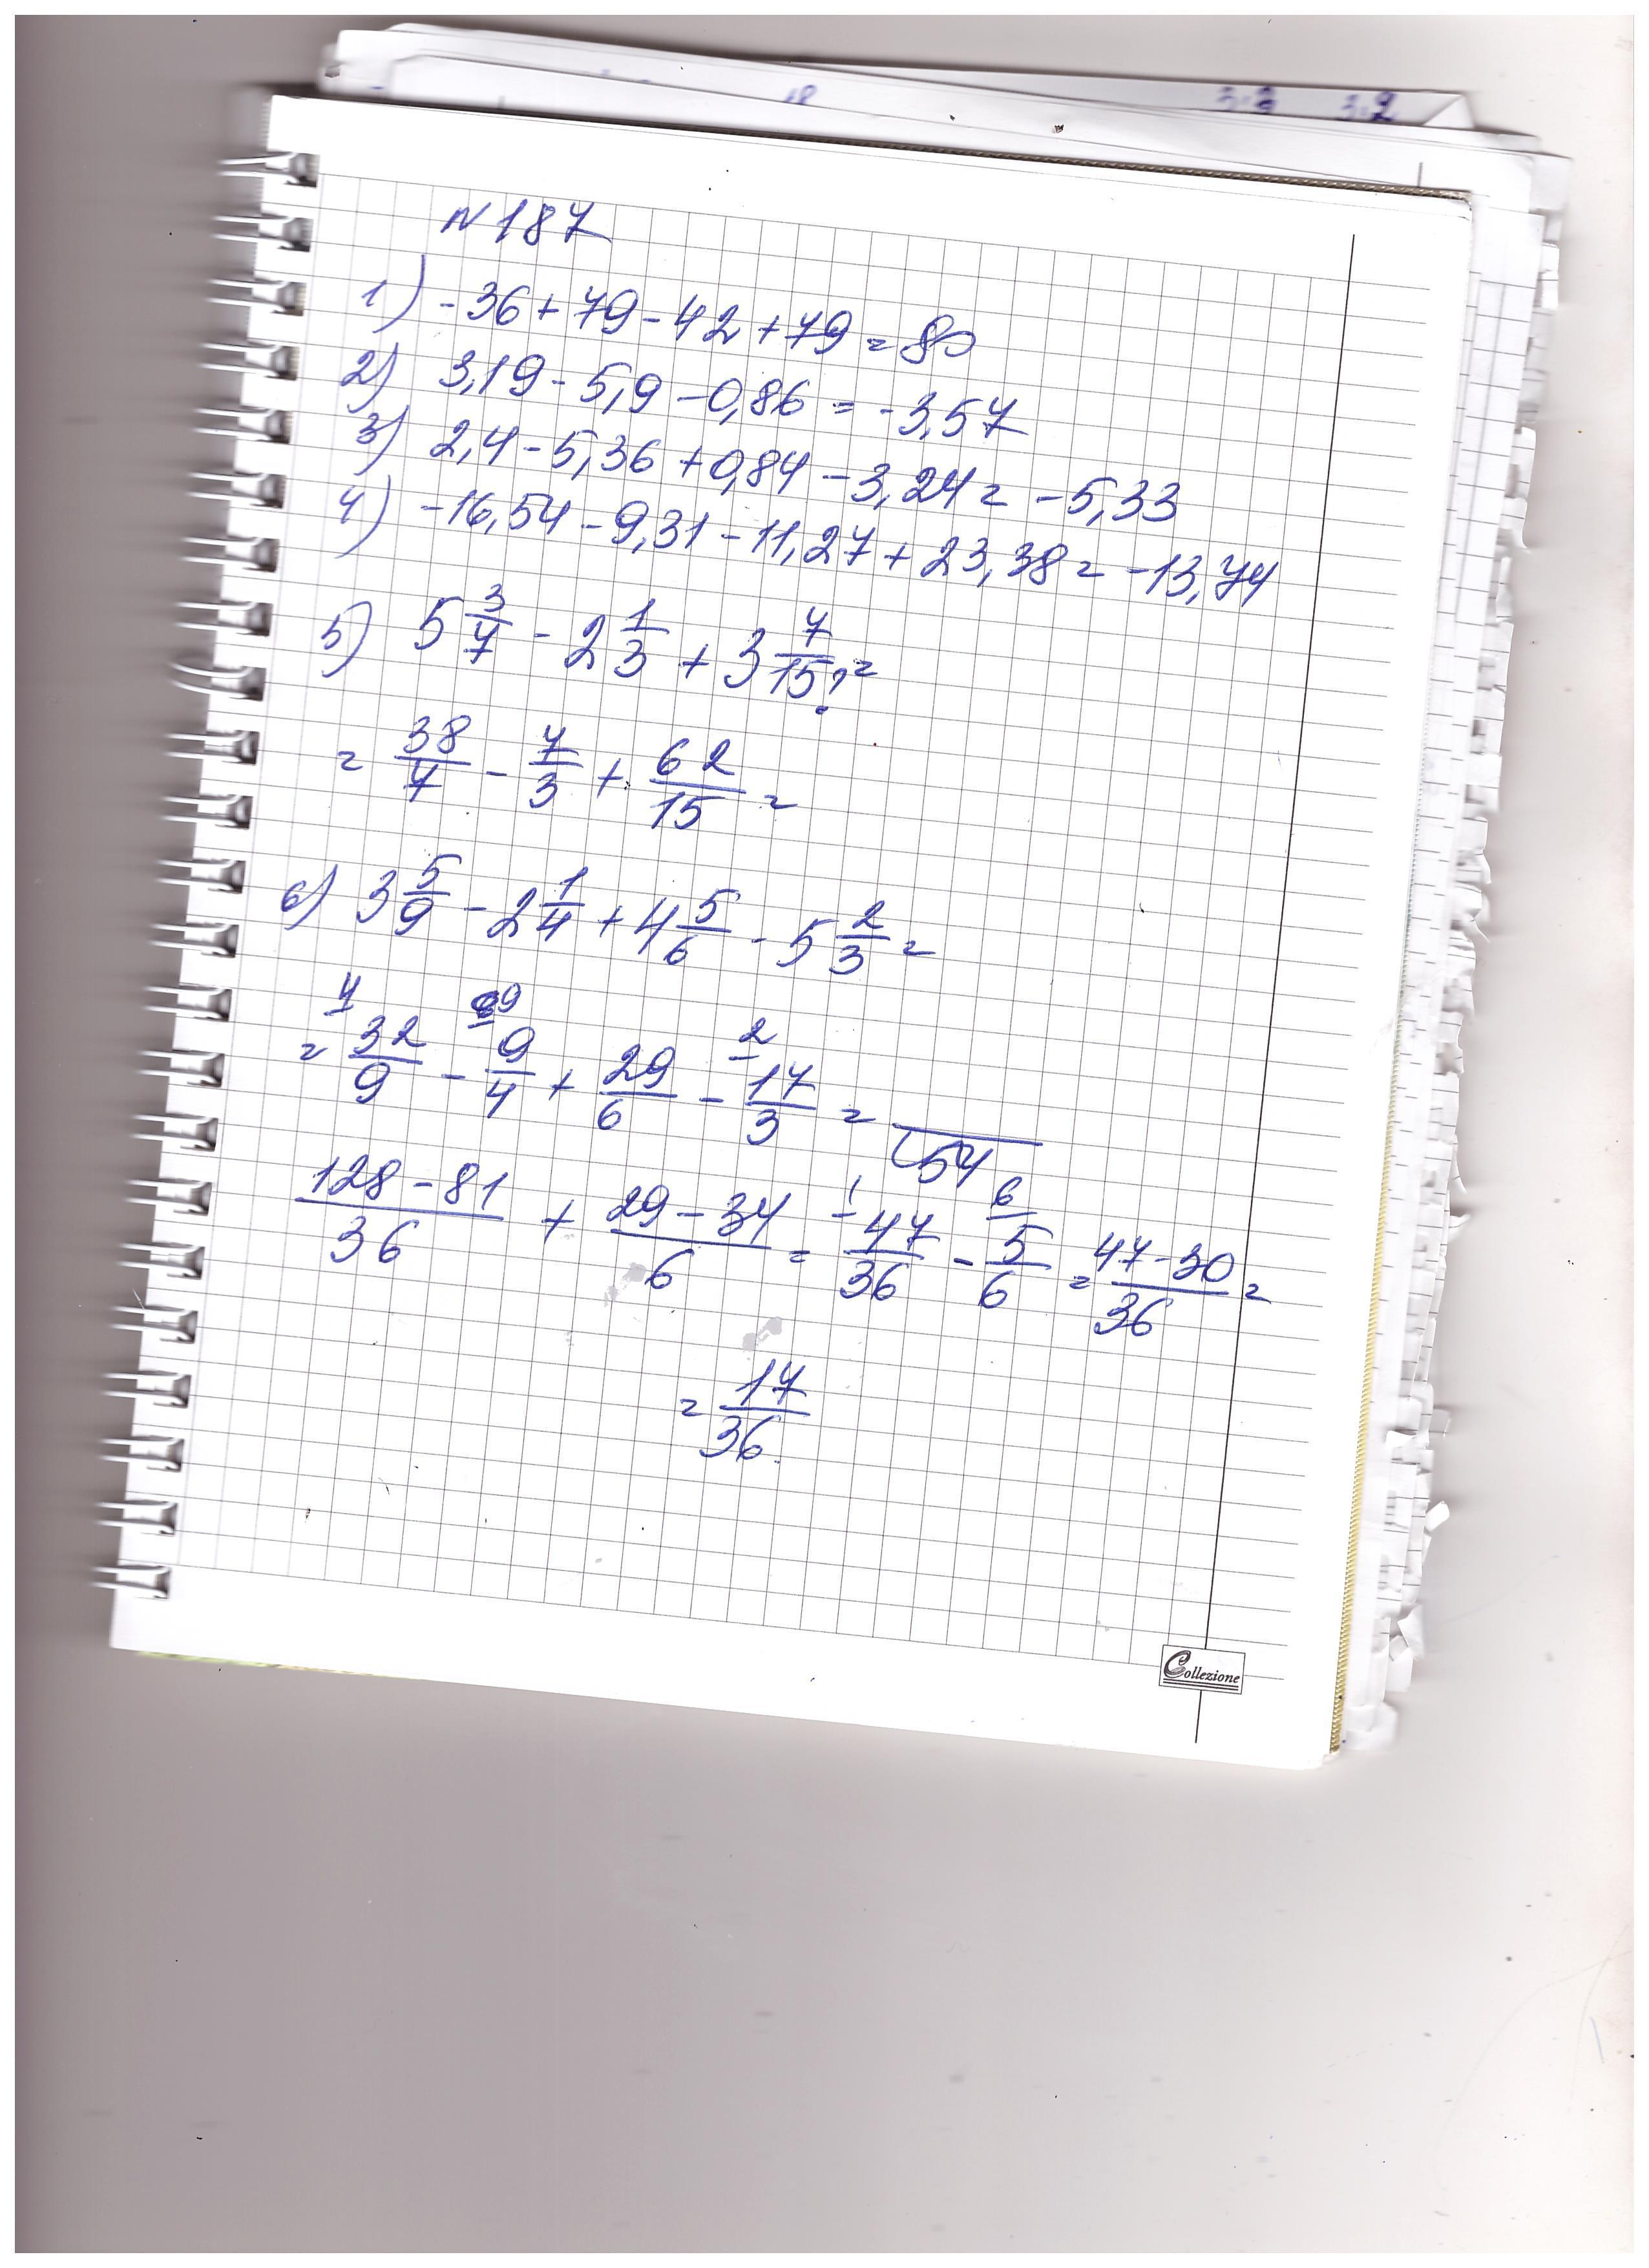 N 187
1) -36+79-42+79=80
2) 3,19-5,9-0,86=-3,57
3) 2,4-5,36+0,84-3,24=-5,33
4) -16,54-9,31-11,27+23,38=-13,74
5) 5 3/7 - 2 1/3 + 3 7/15 ? =
= 38/7 - 7/3 + 62/15 =
6) 3 5/9 - 2 1/4 + 4 5/6 - 5 2/3 =
4 9 2
= 32/9 - 9/4 + 29/6 - 17/3 = /54
1 6
128-81/36 + 29-34/6 = 47/36 - 5/6 = 47-30/36 =
= 17/36
Collezione